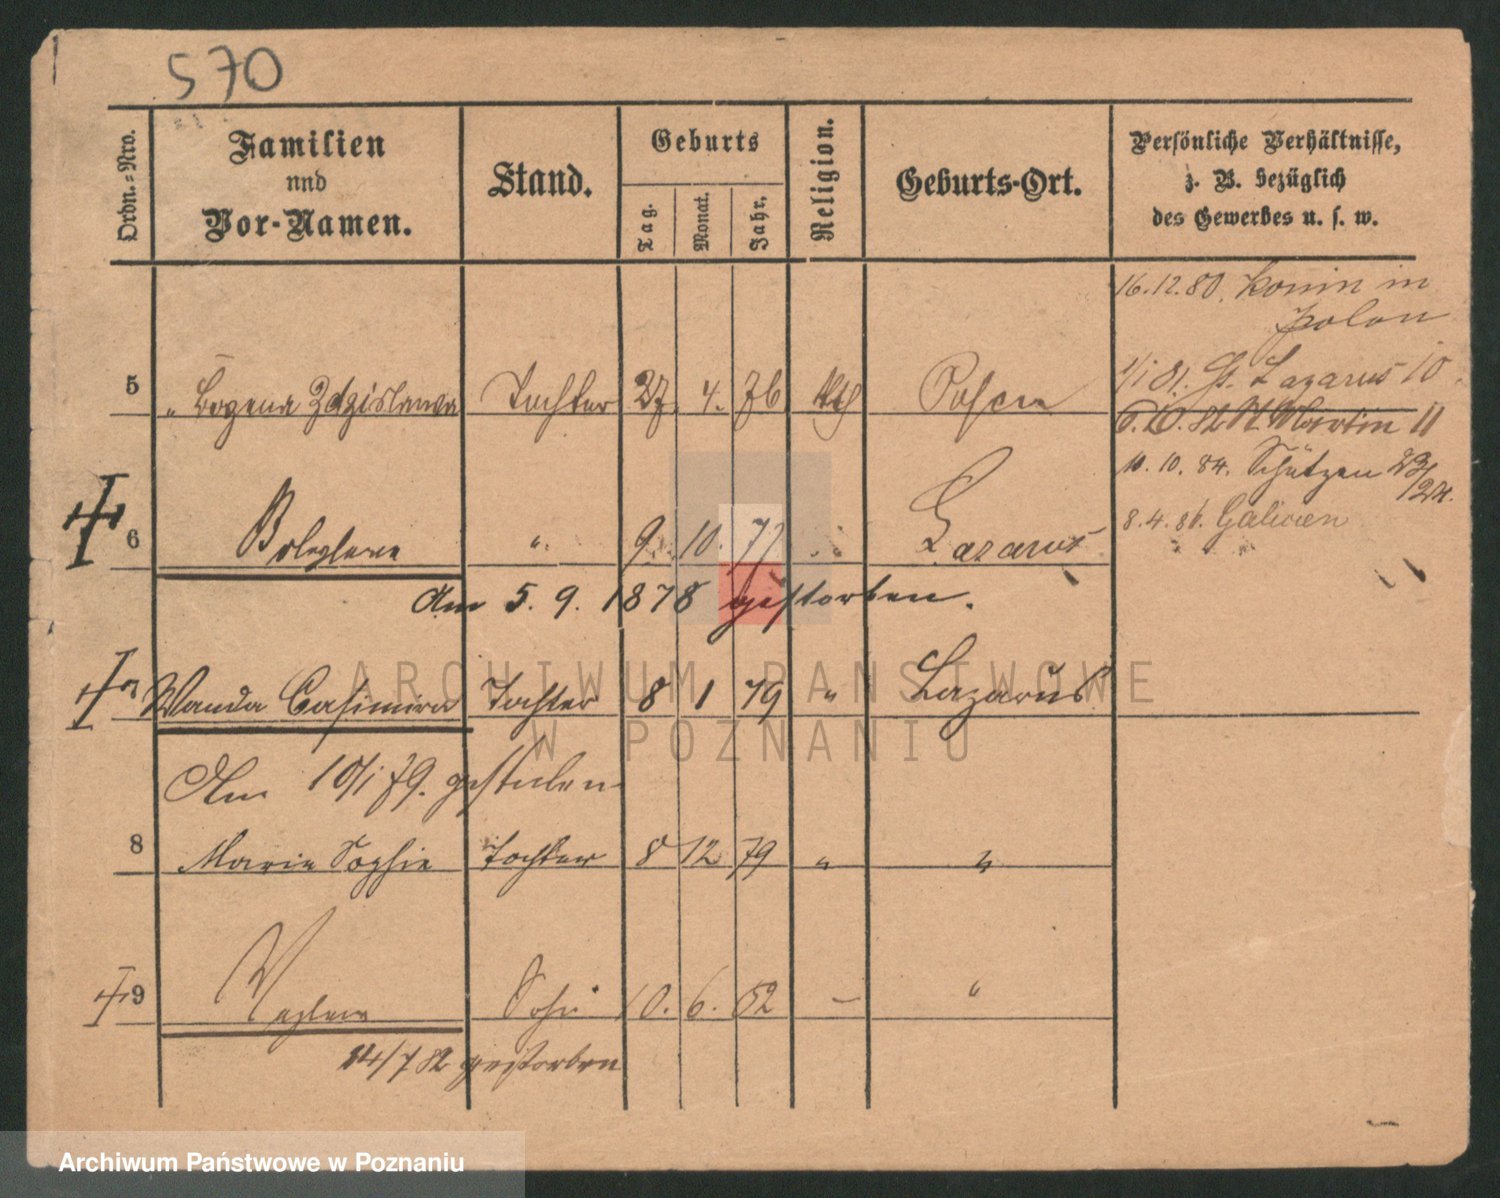 570
Ordn.-Nro.
Familien
und
Vor-Namen.
Stand.
Geburts
Tag.
Monat.
Jahr.
Religion.
Geburts-Ort.
Persönliche Verhältnisse,
z. B. bezüglich
des Gewerbes u. s. w.
16.12.80. Konin in
Polen
1/1 81. St. Lazarus 10.
5 " Bozena Zdzislawa Tochter 27. 4. 76 kth Posen
6.10.82 St. Martin 11
11.10.84. Schützen 23/24.
8.4.86. Galizien
6 Boleslava " 9. 10. 77 " Lazarus
Am 5. 9. 1878 gestorben.
7 Wanda Casimira Tochter 8 1 79 " Lazarus
Am 10/1 79. gestorben
8 Marie Sophie Tochter 8 12 79 " "
9 Sohn 10. 6. 82 – "
14/7 82 gestorben
ARCHIWUM PAŃSTWOWE
W POZNANIU
Archiwum Państwowe w Poznaniu